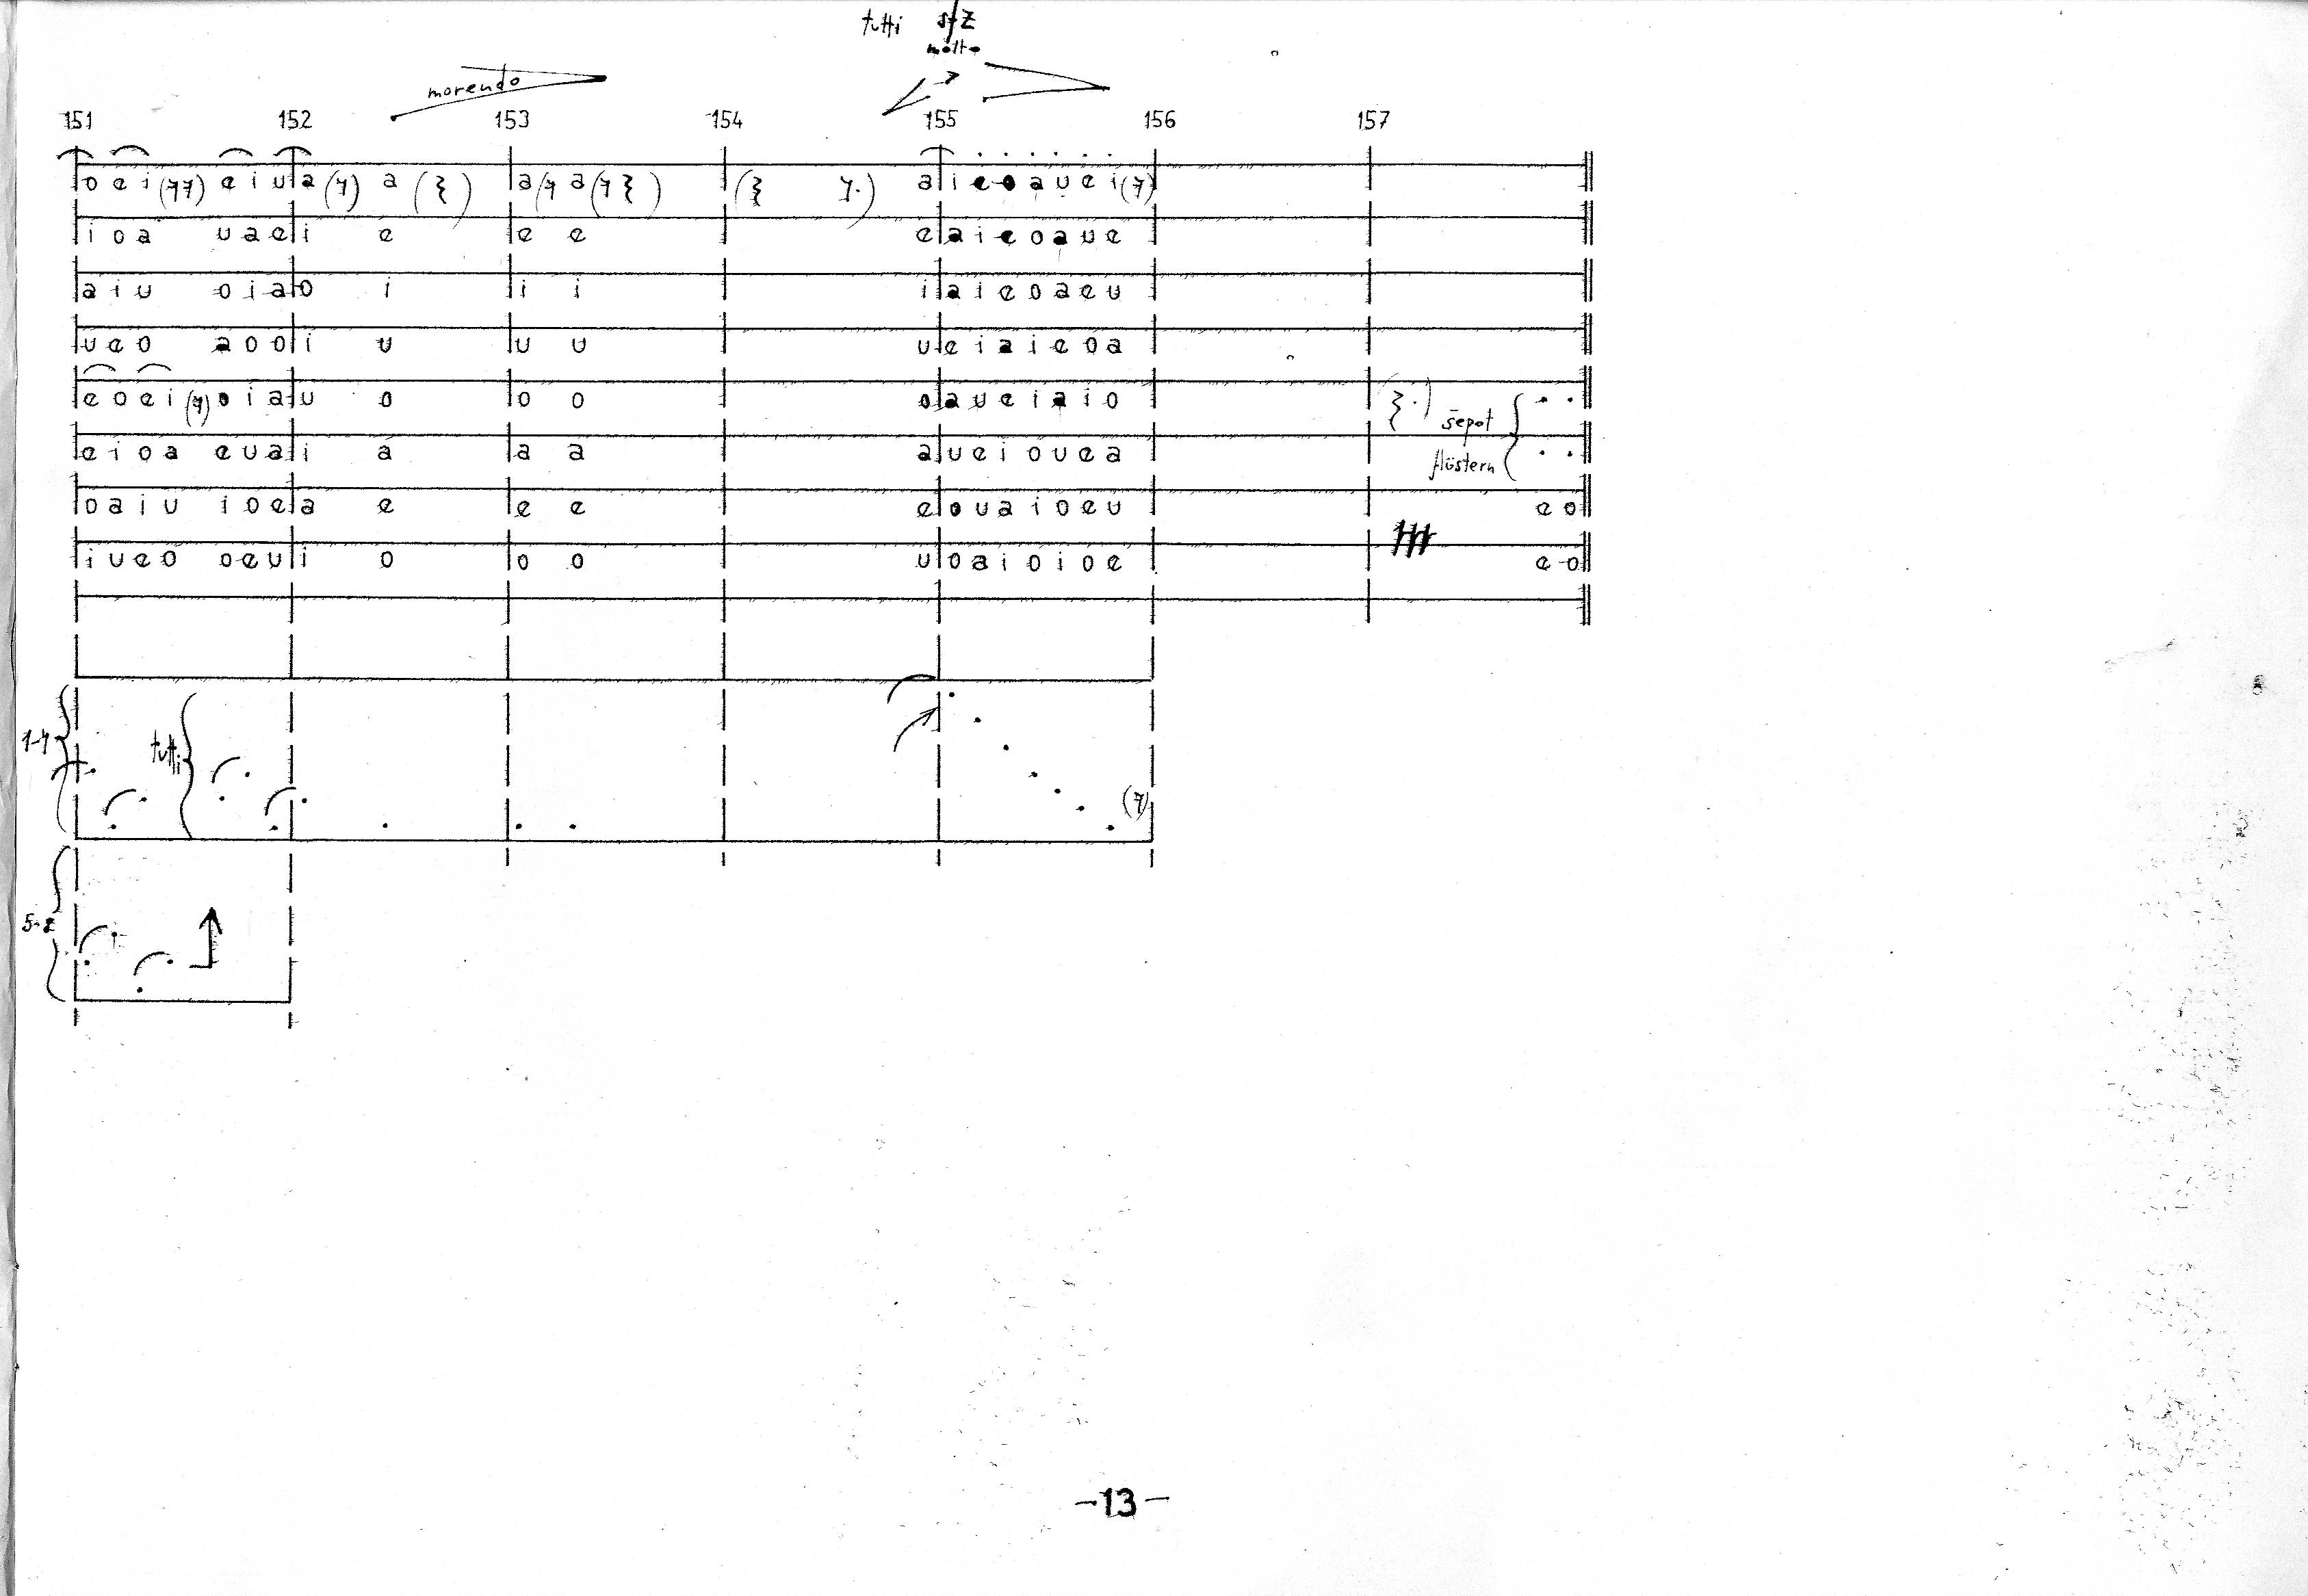 tutti sfz
molto
morendo
151 152 153 154 155 156 157
o e i e i u a a a a a i e o a u e i
i o a u a e i e e e e a i e o a u e
a i u o i a o i i i i a i e o a e u
u e o a o o i u u u u e i a i e o a
e o e i o i a u o o o o a u e i a i o
šepot
e i o a e u a i a a a a u e i o u e a
flüstern
o a i u i o e a e e e e o u a i o e u e o
i u e o o e u i o o o u o a i o i o e e o
1-4 tutti
-13-